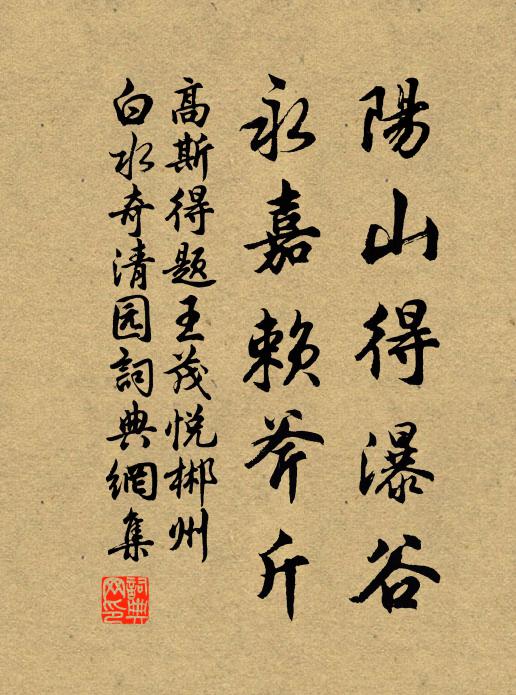 陽山得瀑谷
永嘉賴斧斤
高斯得題王茂悦郴州
白水奇清园詞典網集
詞典
网印